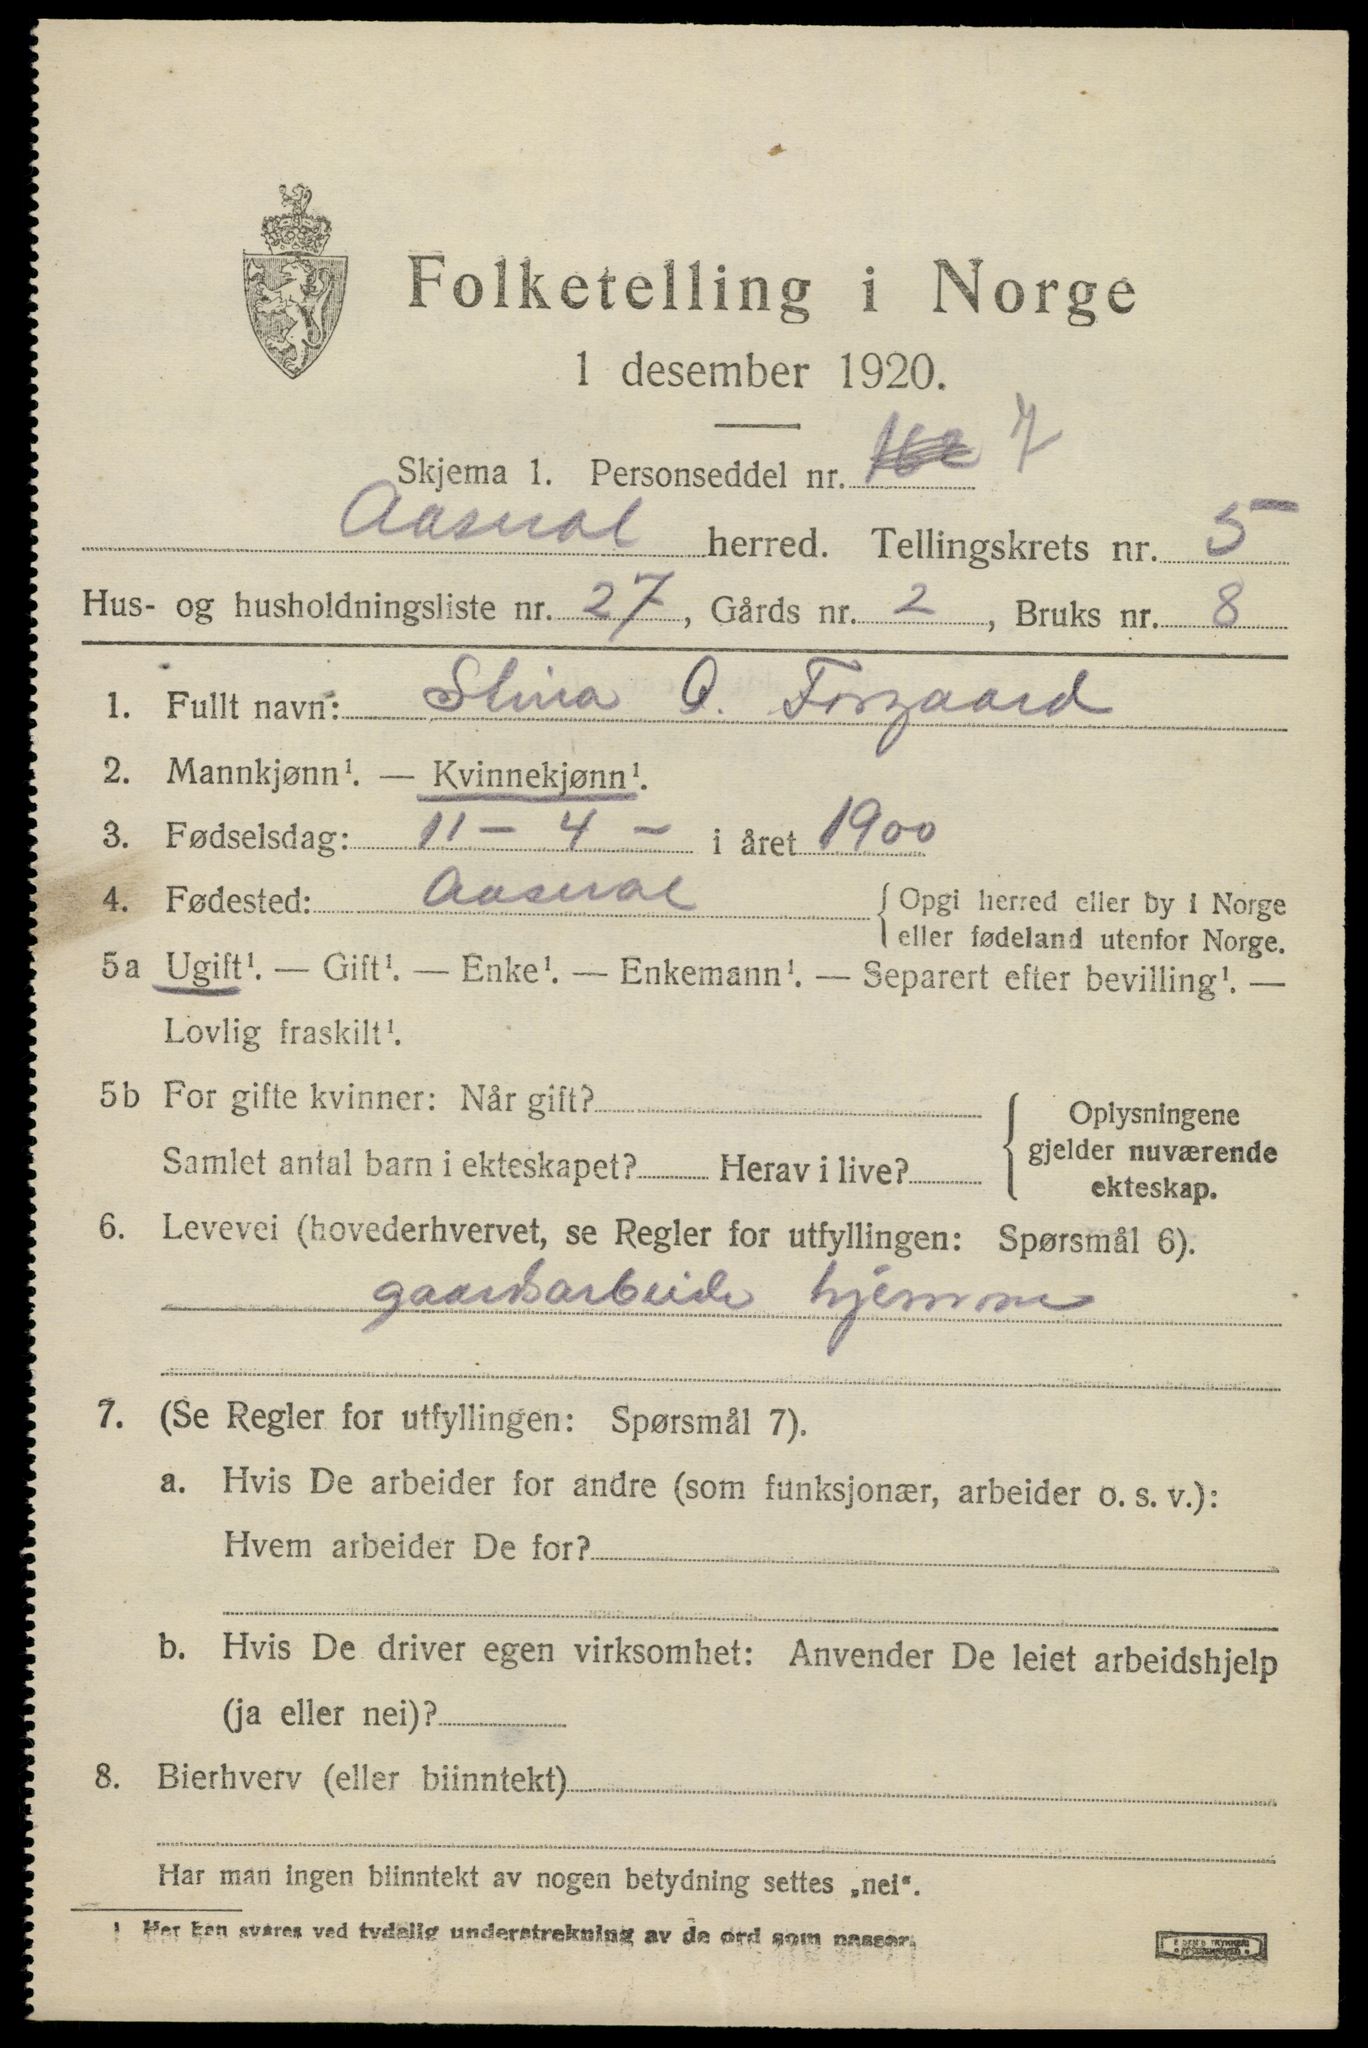 Folketelling i Norge
1 desember 1920.
Skjema 1. Personseddel nr. 7
Aaseral herred. Tellingskrets nr. 5
Hus- og husholdningsliste nr. 27, Gårds nr. 2, Bruks nr. 8
1. Fullt navn: Stina O. Forgaard
2. Mannkjønn¹. — Kvinnekjønn¹.
3. Fødselsdag: 11 - 4 - i året 1900
4. Fødested: Aaseral { Opgi herred eller by i Norge
eller fødeland utenfor Norge.
5a Ugift¹. — Gift¹. — Enke¹. — Enkemann¹. — Separert efter bevilling¹. —
Lovlig fraskilt¹.
5b For gifte kvinner: Når gift?
Samlet antal barn i ekteskapet? Herav i live?
Oplysningene
gjelder nuværende
ekteskap.
6. Levevei (hovederhvervet, se Regler for utfyllingen: Spørsmål 6).
gaardsarbeide hjemme
7. (Se Regler for utfyllingen: Spørsmål 7).
a. Hvis De arbeider for andre (som funksjonær, arbeider o. s. v.):
Hvem arbeider De for?
b. Hvis De driver egen virksomhet: Anvender De leiet arbeidshjelp
(ja eller nei)?
8. Bierhverv (eller biinntekt)
Har man ingen biinntekt av nogen betydning settes „nei“.
¹ Her kan svares ved tydelig understrekning av de ord som passer.